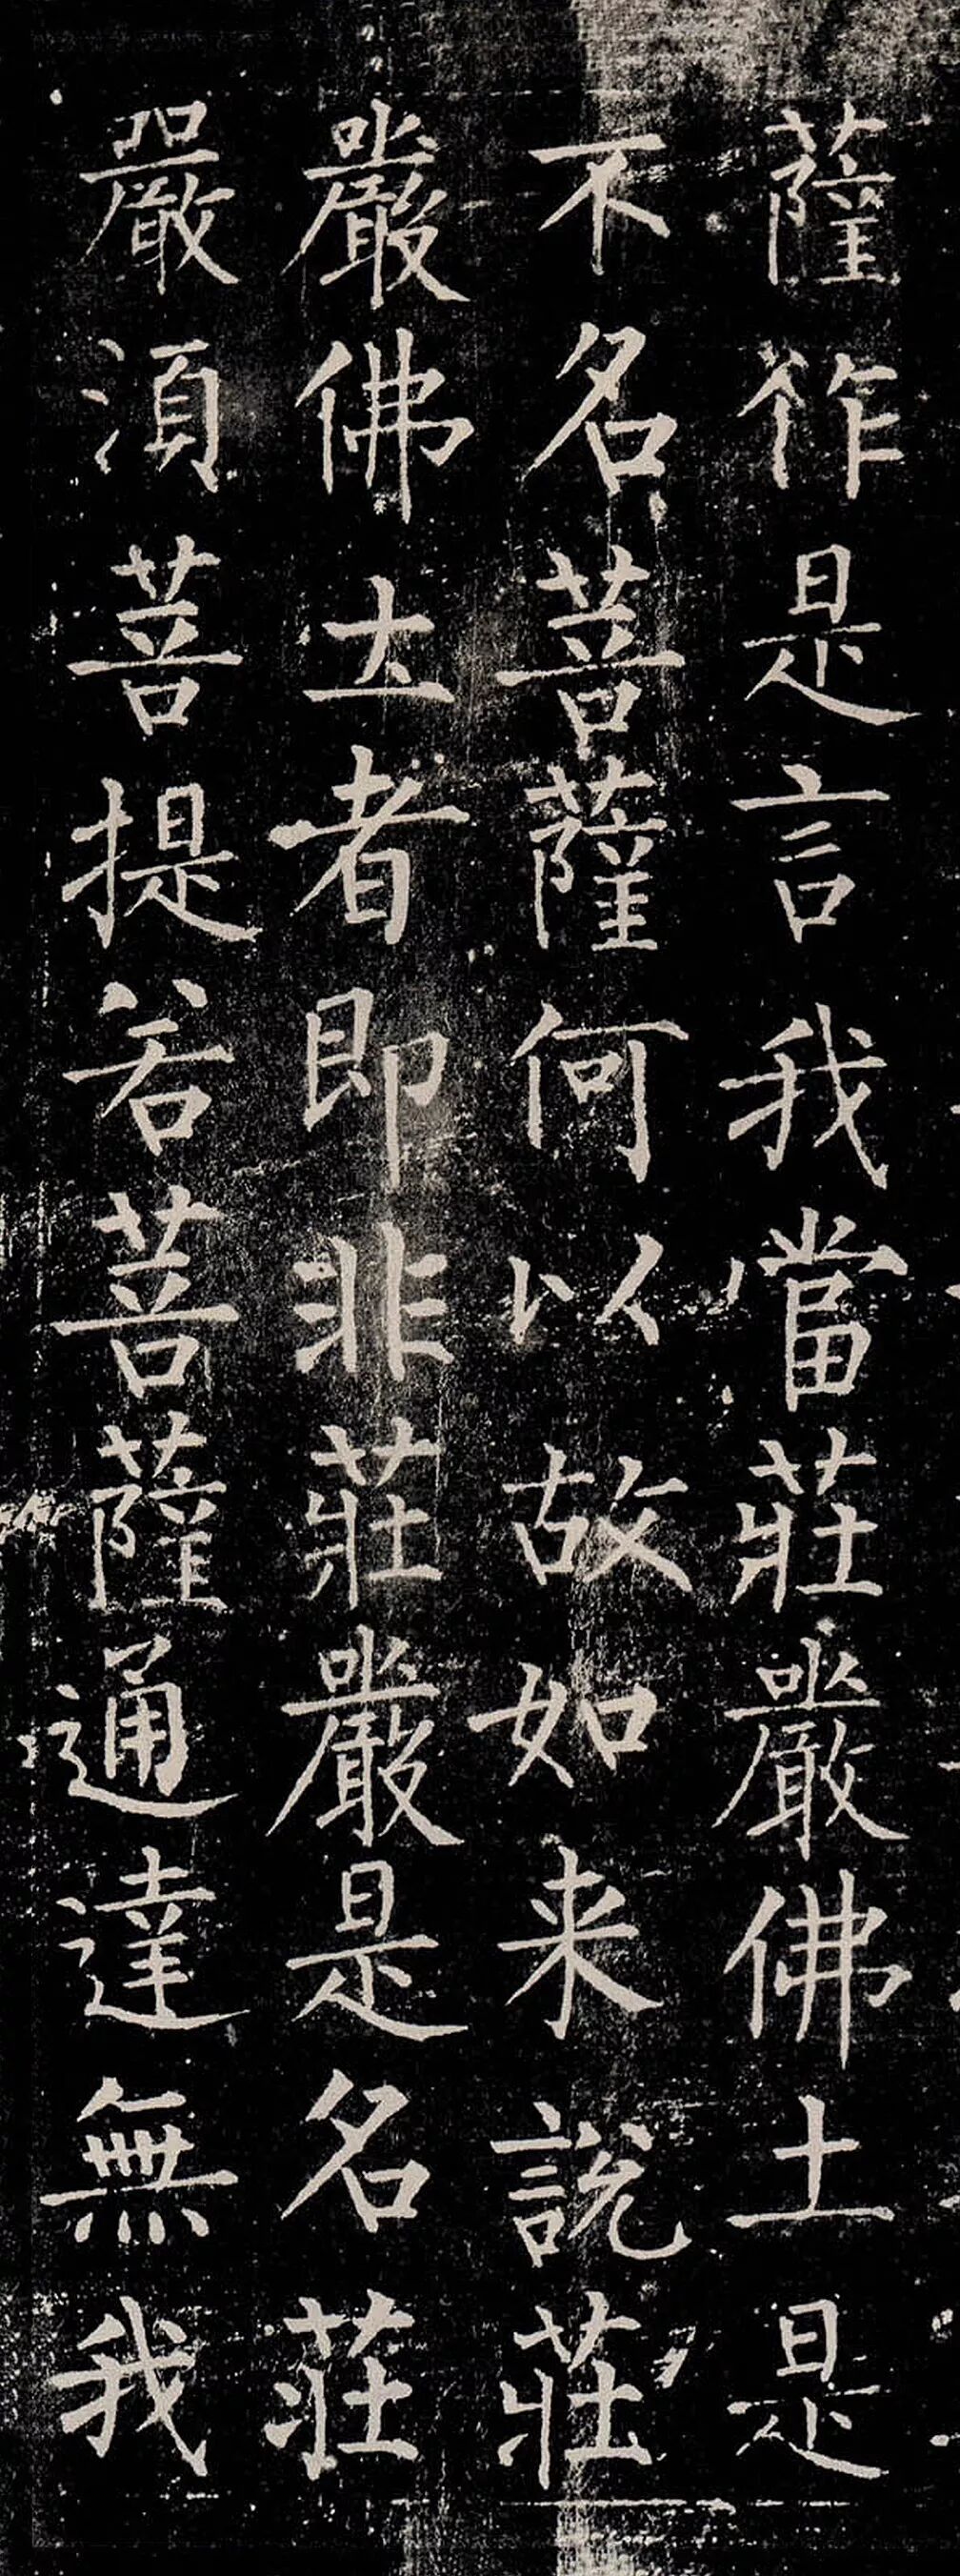 薩作是言我當莊嚴佛土是
不名菩薩何以故如来說莊
嚴佛土者即非莊嚴是名莊
嚴須菩提若菩薩通達無我